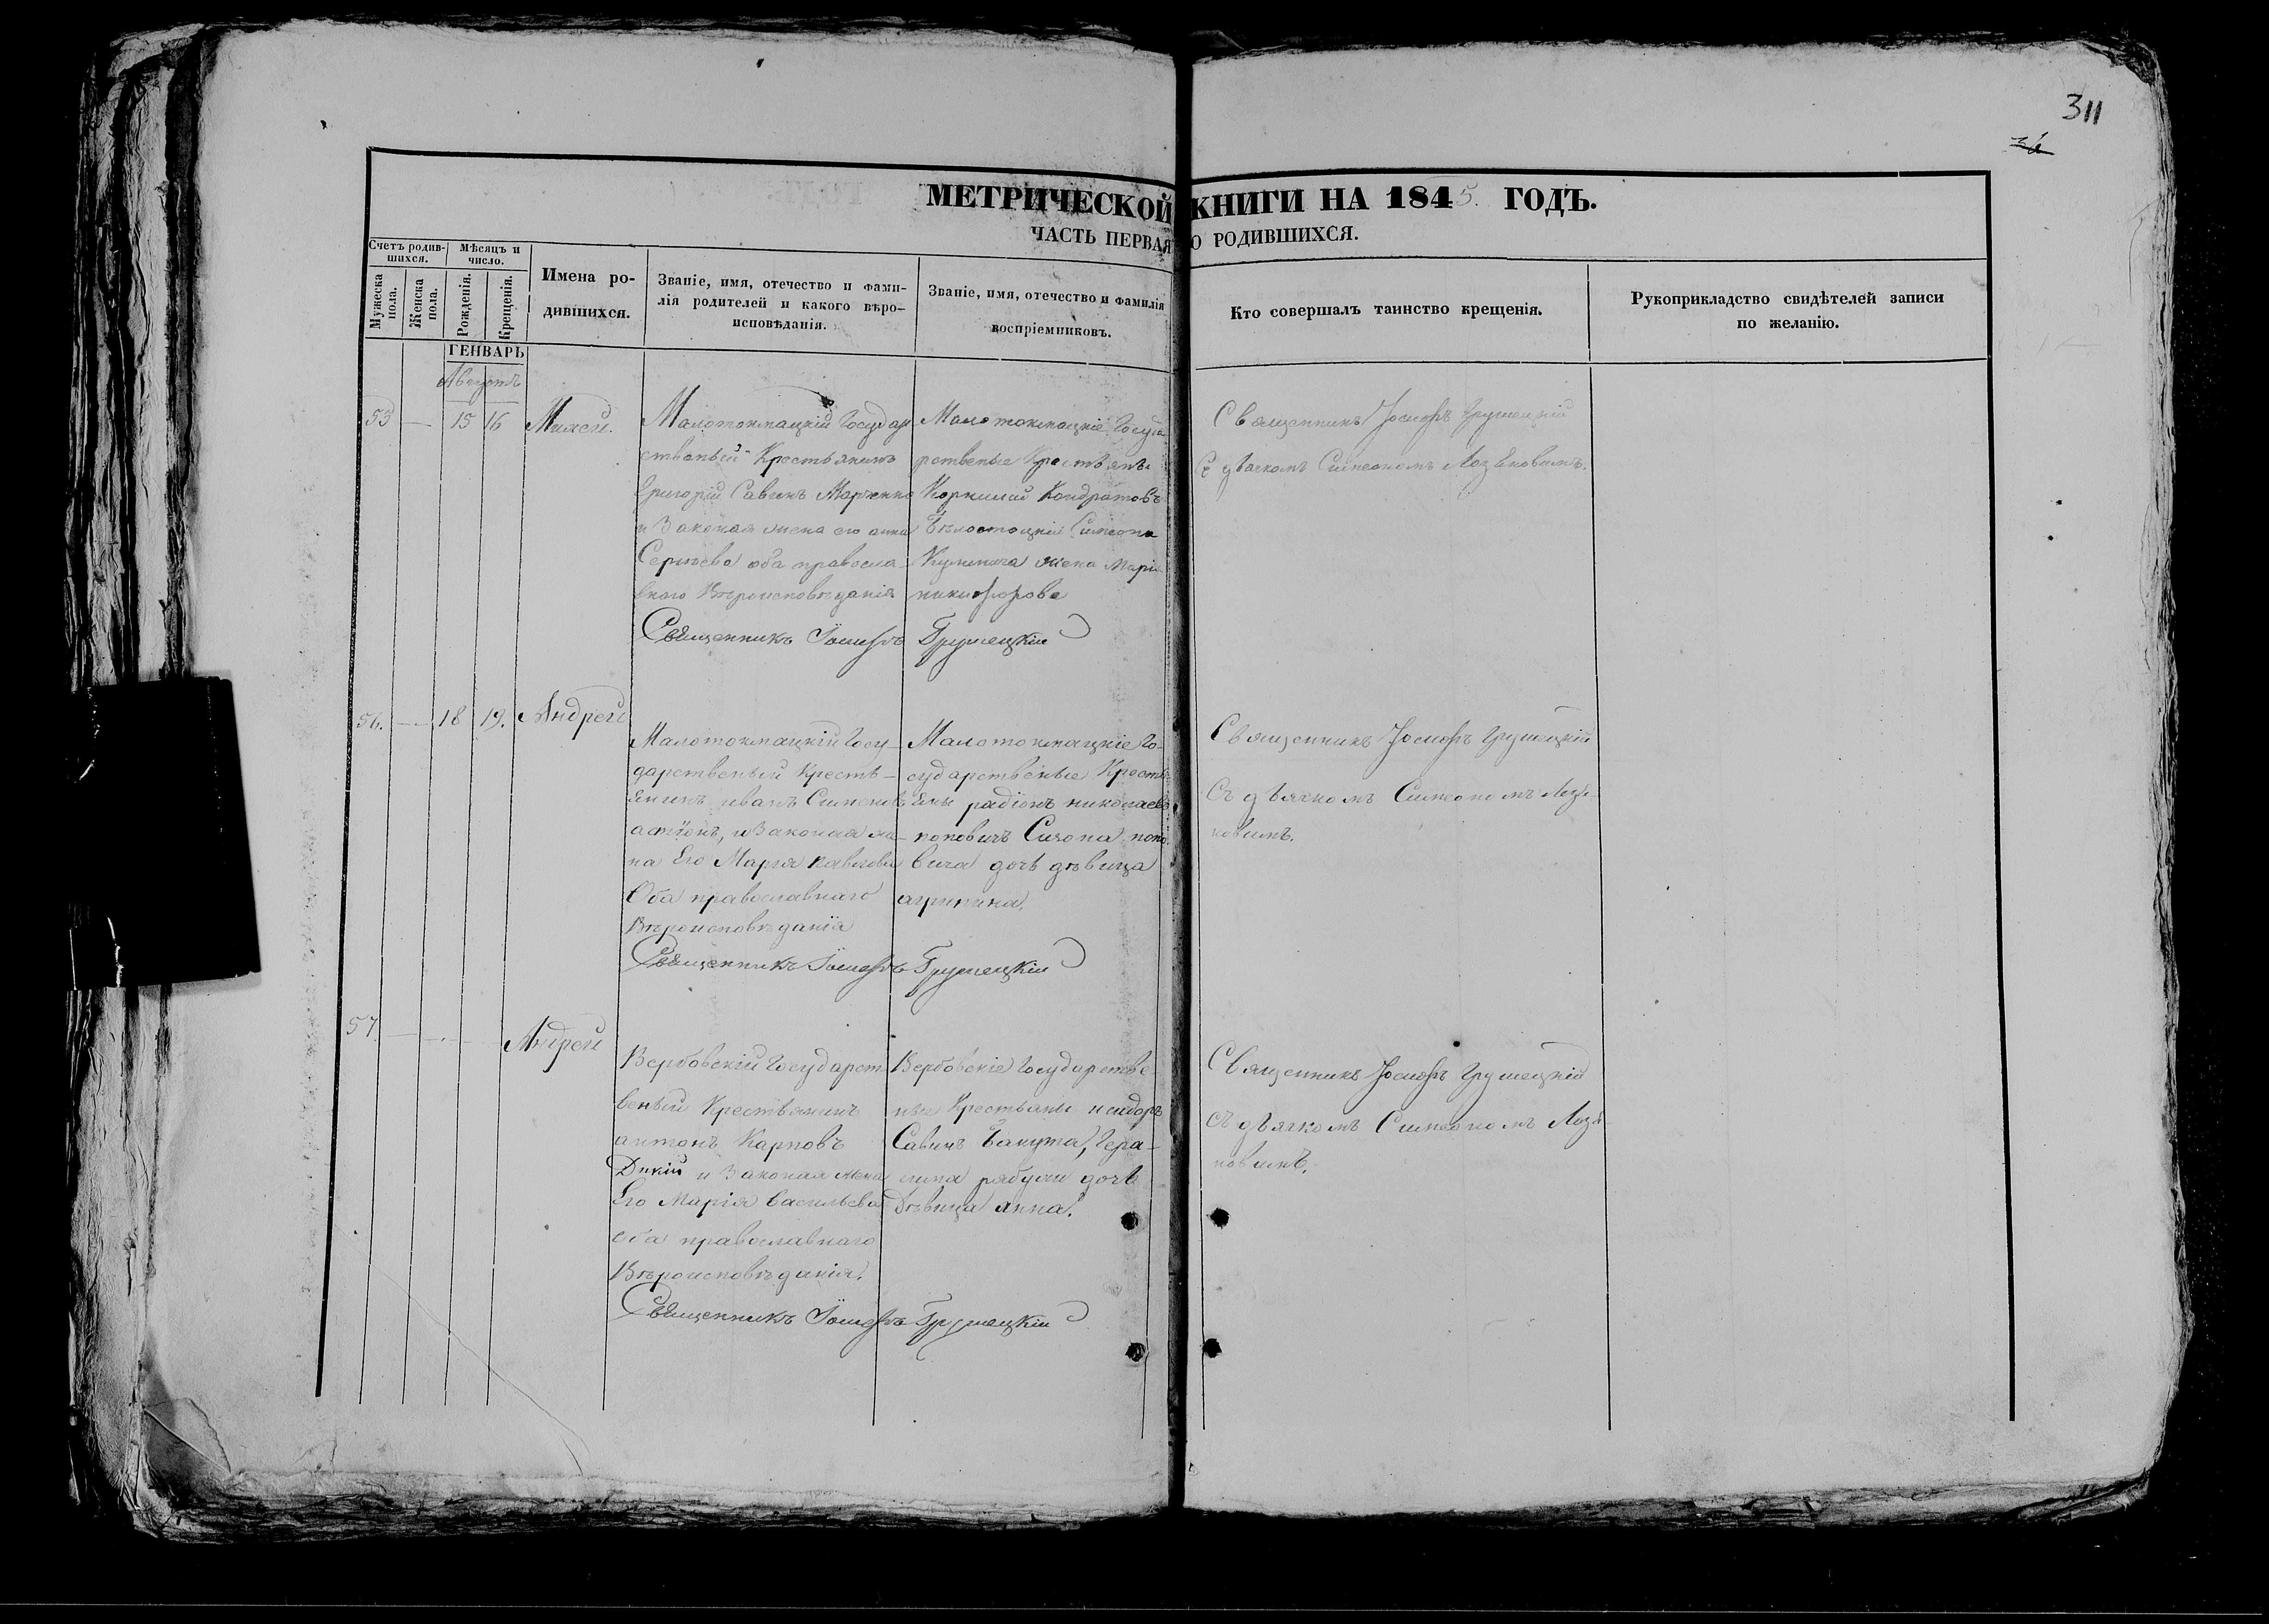 311
МЕТРИЧЕСКОЙ КНИГИ НА 1845. ГОДЪ.
ЧАСТЬ ПЕРВАЯ О РОДИВШИХСЯ.
Счетъ родив-
шихся.
Мужеска
пола.
Женска
пола.
Мѣсяцъ и
число.
Рожденія.
Крещенія.
Имена ро-
дившихся.
Званіе, имя, отечество и фами-
лія родителей и какого вѣро-
исповѣданія.
Званіе, имя, отечество и фамилія
воспріемниковъ.
Кто совершалъ таинство крещенія.
Рукоприкладство свидѣтелей записи
по желанію.
ГЕНВАРЬ
Августъ
55 — 15 16
Малотокмацкій Государ
ственый Крестьянинъ
Григорій Савинъ Марченко
и Законая жена его анна
Сергѣева оба правосла-
внаго Вѣроисповѣданія
Малотокмацкіе Госуда
рственые Крестьяны
Корнилий Кондратовъ
Бѣлостоцкій Симеона
жена Марія
никифорова
Священникъ Іосифъ Грушецкій
Священникъ Іосифъ Грушецкій
Съ дьячкомъ Симеономъ Лозяновимъ.
56. — 18 19. Андрей
Малотокмацкій Госу-
дарственый Кресть-
янинъ иванъ Симеоновъ
и Законая же-
на Его Марія павлова
Оба православнаго
Вѣроисповѣданія
Малотокмацкіе Го-
сударственые Кресть
яны радіонъ николаевъ
поповичъ Сизона попо
вича дочь дѣвица
агрипина.
Священникъ Іосифъ Грушецкій
Священникъ Іосифъ Грушецкій
Съ дьячкомъ Симеономъ Лозя-
новимъ.
57 — Андрей
Вербовскій Государст
веный Крестьянинъ
антонъ Карповъ
Дикій и Законая жена
Его Марія Васильева
оба православнаго
Вѣроисповѣданія.
Вербовскіе Государстве
ные Крестьяны исидоръ
Савинъ Бакута, Гера-
сима рябухи дочь
Дѣвица анна.
Священникъ Іосифъ Грушецкій
Священникъ Іосифъ Грушецкій
съ дьячкомъ Симеономъ Лозя-
новимъ.